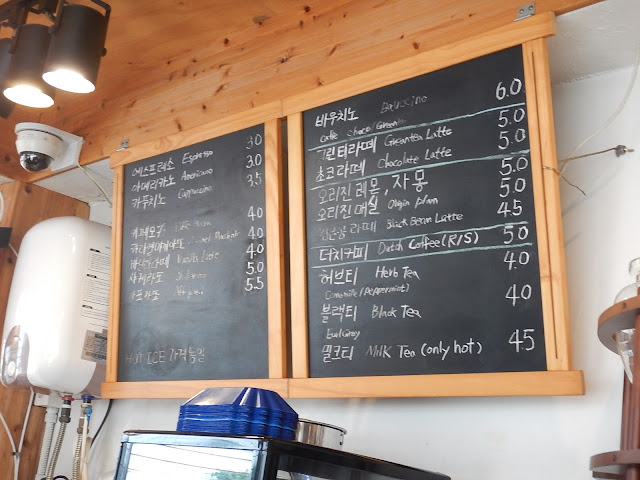 에스프레소 Espresso 3.0
아메리카노 Americano 3.0
카푸치노 Cappuccino 3.5
카페모카 4.0
4.0
Vanilla Latte 4.0
5.0
5.5
HOT, ICE 가격동일
바우치노 6.0
Coffe choco/Green
그린티라떼 Greentea Latte 5.0
초코라떼 Chocolate Latte 5.0
오리진레몬,자몽 5.0
오리진매실 Origin plum 5.0
라떼 Black Bean Latte 4.5
더치커피 Dutch Coffee(R/S) 5.0
허브티 Herb Tea 4.0
Camomile/Peppermint)
블랙티 Black Tea 4.0
Earl Grey
밀크티 Milk Tea (only hot) 4.5